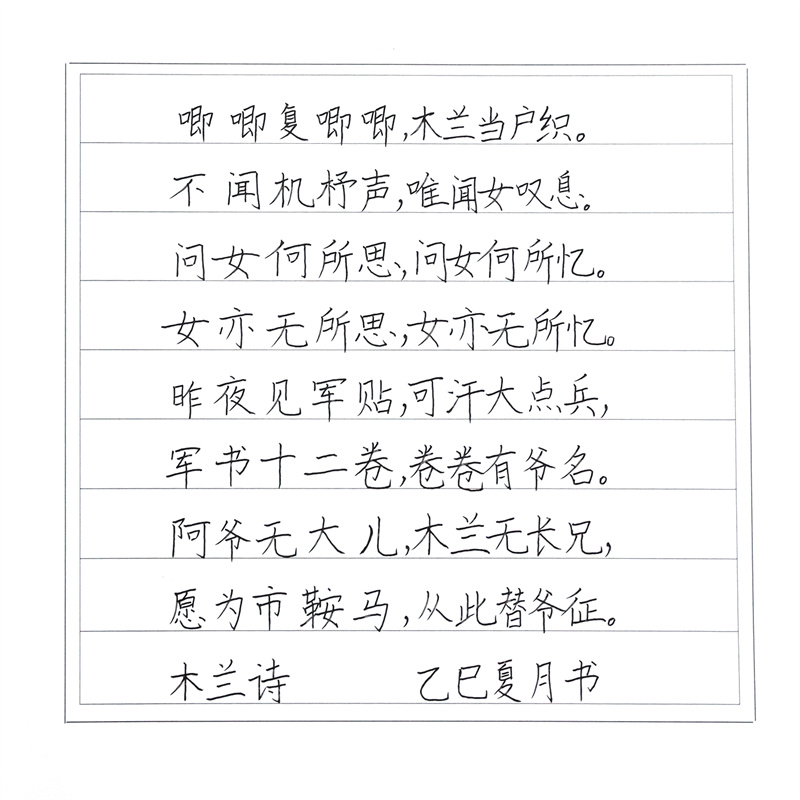 唧唧复唧唧,木兰当户织。
不闻机杼声,唯闻女叹息。
问女何所思,问女何所忆。
女亦无所思,女亦无所忆。
昨夜见军贴,可汗大点兵,
军书十二卷,卷卷有爷名。
阿爷无大儿,木兰无长兄,
愿为市鞍马,从此替爷征。
木兰诗 乙巳夏月书